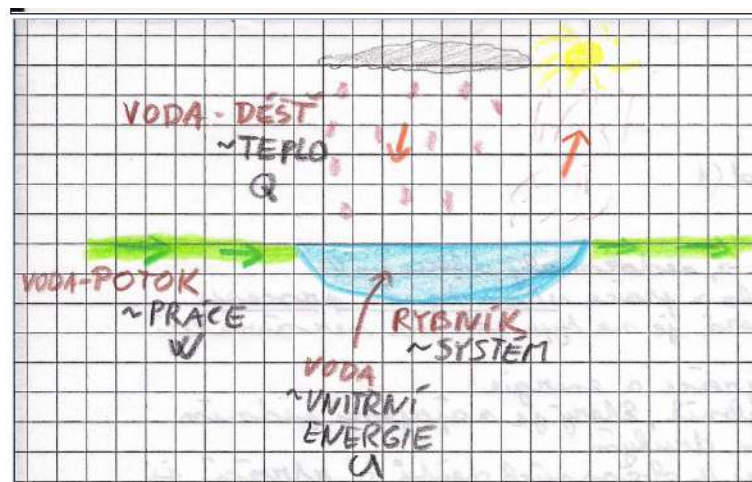 VODA - DÉŠŤ
~TEPLO
Q
VODA-POTOK
~PRÁCE
W
RYBNÍK
~SYSTÉM
VODA
~VNITŘNÍ
ENERGIE
U